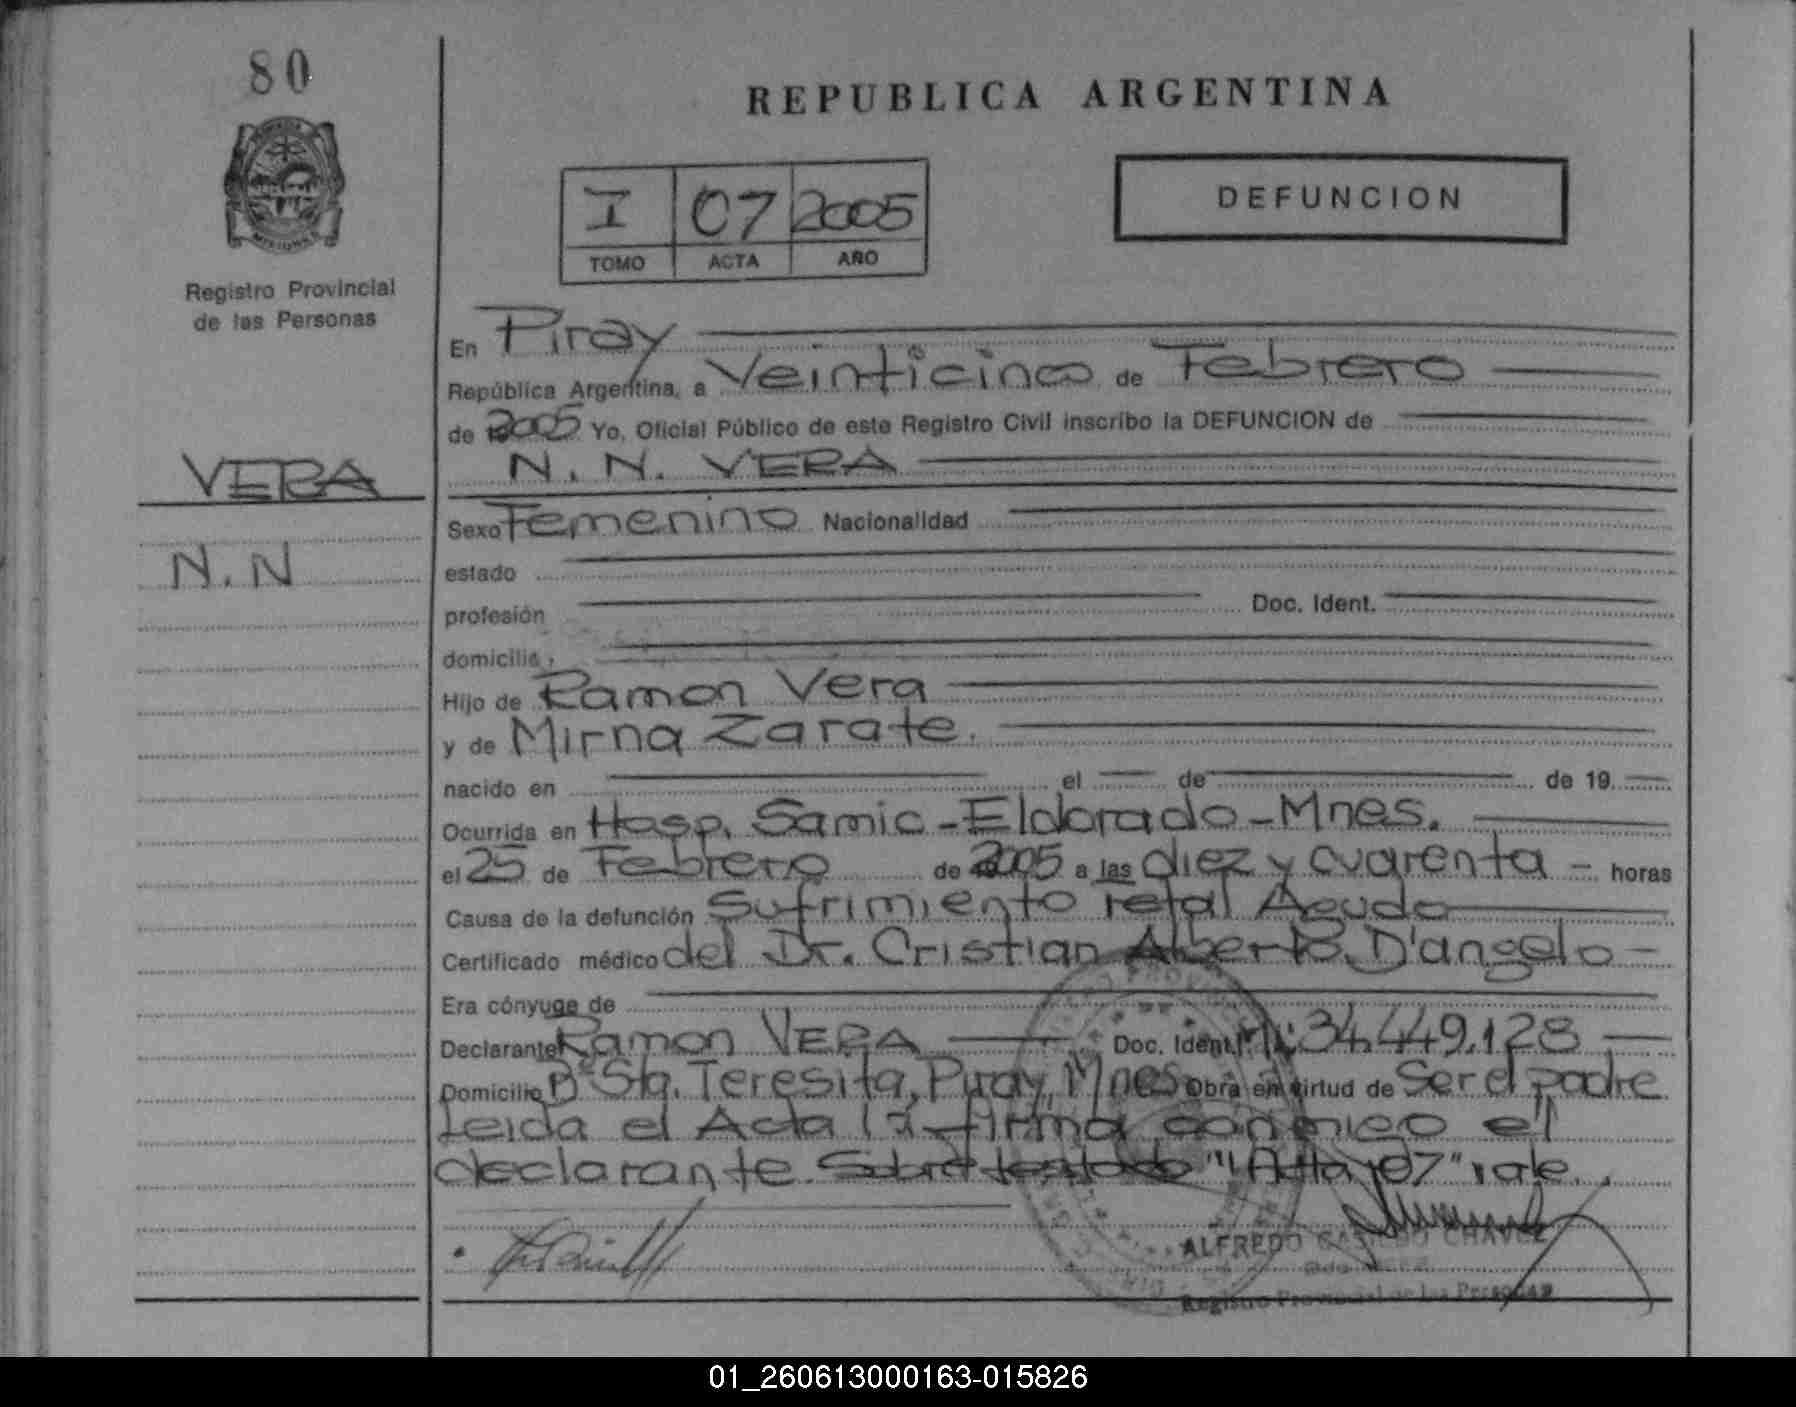 80
REPUBLICA ARGENTINA
MISIONES
Registro Provincial
de las Personas
I 07 2005
TOMO ACTA AÑO
DEFUNCION
VERA
N.N
En Piray
República Argentina, a Veinticinco de Febrero
de 2005 Yo, Oficial Público de este Registro Civil inscribo la DEFUNCION de
N. N. VERA
Sexo Femenino Nacionalidad
estado
profesión Doc. Ident.
domicilio
Hijo de Ramon Vera
y de Mirna Zarate.
nacido en el de de 19
Ocurrida en Hosp. Samic - Eldorado - Mnes.
el 25 de Febrero de 2005 a las diez y cuarenta - horas
Causa de la defunción Sufrimiento fetal Agudo
Certificado médico del Dr. Cristian Alberto D'angelo -
Era cónyuge de
Declarante Ramon VERA Doc. Ident. M.I: 34.449.128
Domicilio B° Sta. Teresita, Piray, Mnes Obra en virtud de Ser el padre
Leida el Acta la firma conmigo el
declarante. Sobre testado "Acta 07" vale.
ALFREDO CHAVEZ
Registro Provincial de las Personas
01_260613000163-015826